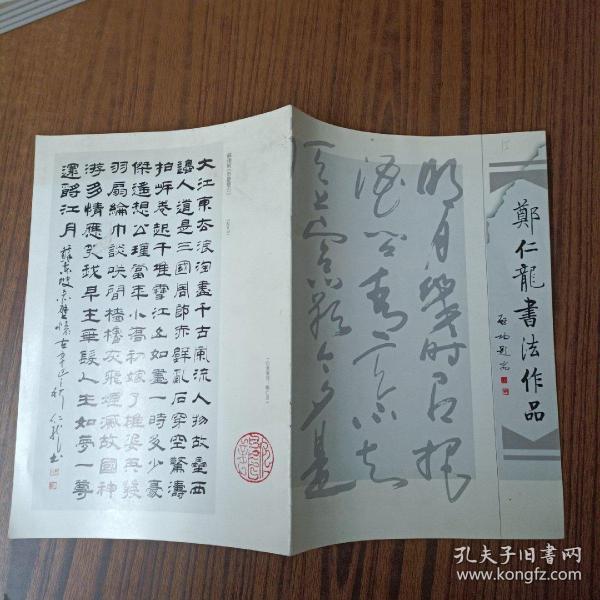 鄭仁龍書法作品
啟功題簽
明月幾時有把
酒問青天不知
天上宮闕今夕是
大江東去浪淘盡千古風流人物故壘西
邊人道是三國周郎赤壁亂石穿空驚濤
拍岸卷起千堆雪江山如畫一時多少豪
傑遙想公瑾當年小喬初嫁了雄姿英發
羽扇綸巾談笑間檣櫓灰飛煙滅故國神
游多情應笑我早生華髮人生如夢一尊
還酹江月
蘇東坡赤壁懷古
仁龍書
孔夫子旧书网
www.kongfz.com